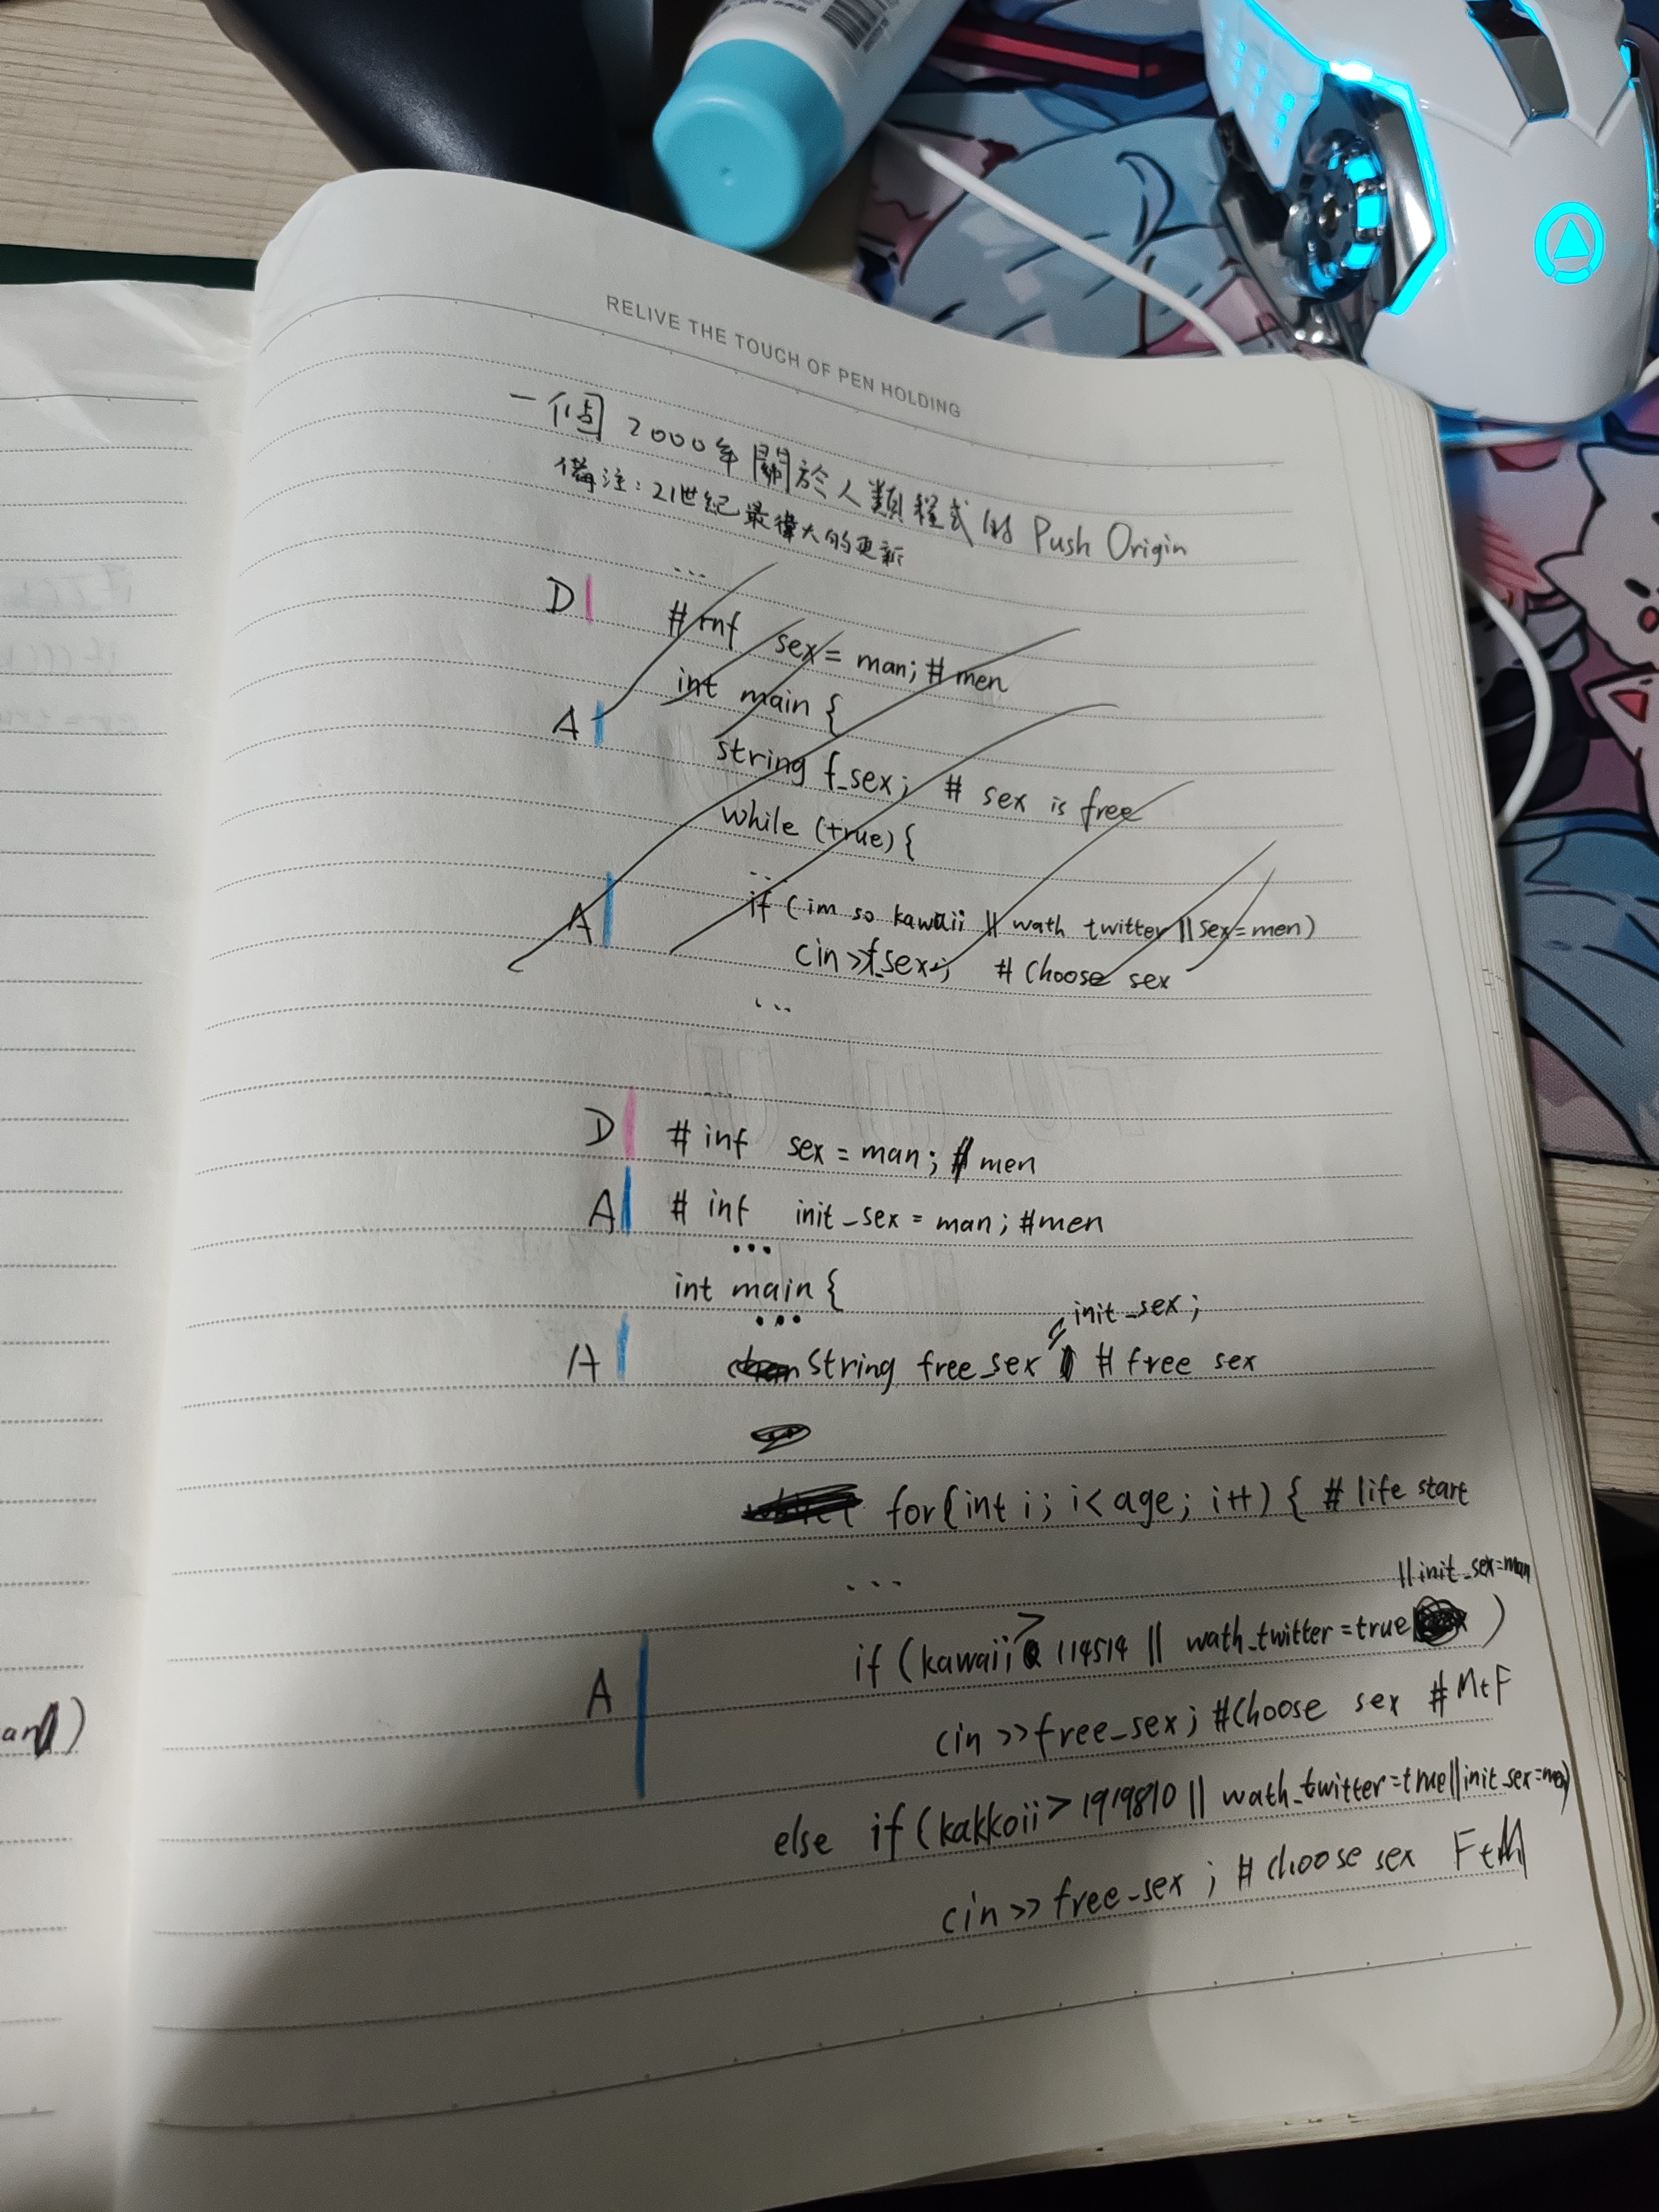 RELIVE THE TOUCH OF PEN HOLDING
一個 2000年關於人類程式的 Push Origin
備注：21世紀最偉大的更新
...
D # inf sex = man; # men
int main {
A string f_sex; # sex is free
while (true) {
...
A if (im so kawaii || wath twitter || sex=men)
cin >> f_sex; # Choose sex
...
...
D # inf sex = man; # men
A # inf init_sex = man; #men
...
int main {
...
init_sex;
A String free_sex = # free sex
for(int i; i < age; i++) { # life start
...
|| init_sex=man
A if (kawaii > 114514 || wath_twitter = true )
cin >> free_sex; #Choose sex #MtF
else if (kakkoii > 1919810 || wath_twitter=true || init_sex=men)
cin >> free_sex ; # choose sex FtM
)